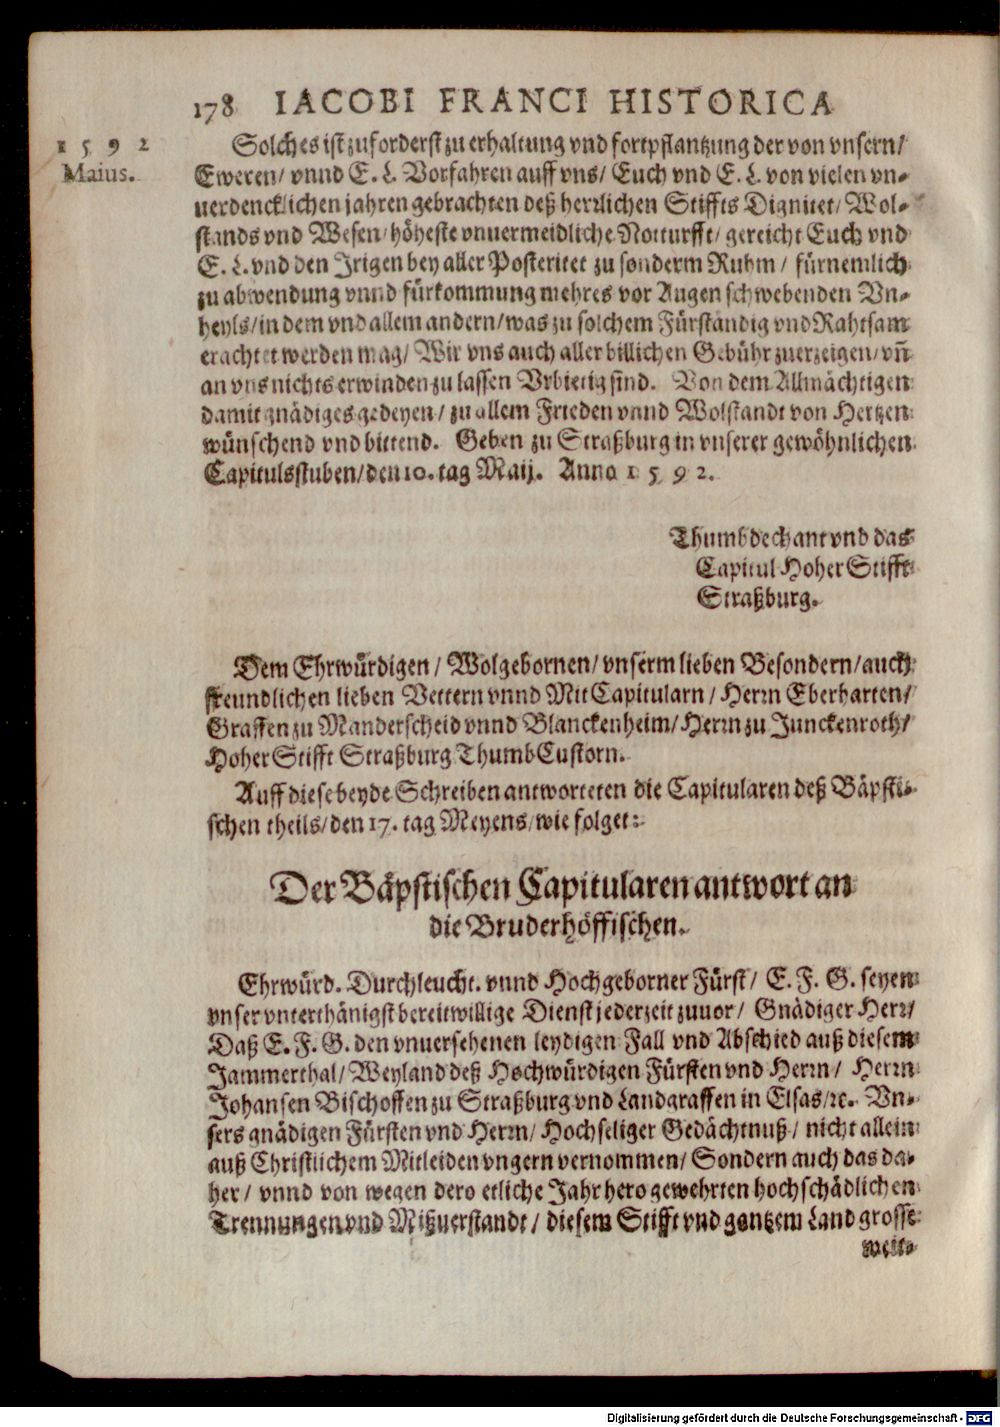 178 IACOBI FRANCI HISTORICA
1592
Maius.
Solches ist zuforderst zu erhaltung vnd fortpflantzung der von vnsern/
Eweren/ vnnd E. L. Vorfahren auff vns/ Euch vnd E. L. von vielen vn-
uerdencklichen jahren gebrachten deß herrlichen Stiffts Dignitet/ Wol-
stands vnd Wesen/ höheste vnuermeidliche Notturfft/ gereicht Euch vnd
E. L. vnd den Irigen bey aller Posteritet zu sonderm Ruhm/ fürnemlich
zu abwendung vnnd fürkommung mehres vor Augen schwebenden Vn-
heyls/ in dem vnd allem andern/ was zu solchem Fürständig vnd Rahtsam
erachtet werden mag/ Wir vns auch aller billichen Gebühr zuerzeigen/ vñ
an vns nichts erwinden zu lassen Vrbietig sind. Von dem Allmächtigen
damit gnädiges gedeyen/ zu allem Frieden vnnd Wolstandt von Hertzen
wünschend vnd bittend. Geben zu Straßburg in vnserer gewöhnlichen
Capitulsstuben/ den 10. tag Maij. Anno 1592.
Thumbdechant vnd das
Capitul Hoher Stifft
Straßburg.
Dem Ehrwürdigen/ Wolgebornen/ vnserm lieben Besondern/ auch
freundlichen lieben Vettern vnnd MitCapitularn/ Herrn Eberharten/
Graffen zu Manderscheid vnnd Blanckenheim/ Herrn zu Junckenroth/
Hoher Stifft Straßburg ThumbCustorn.
Auff diese beyde Schreiben antworteten die Capitularen deß Bäpsti-
schen theils/ den 17. tag Meyens/ wie folget:
Der Bäpstischen Capitularen antwort an
die Bruderhöffischen.
Ehrwürd. Durchleucht. vnnd Hochgeborner Fürst/ E. F. G. seyen
vnser vnterthänigst bereitwillige Dienst jederzeit zuuor/ Gnädiger Herr/
Daß E. F. G. den vnuersehenen leydigen Fall vnd Abschied auß diesem
Jammerthal/ Weyland deß Hochwürdigen Fürsten vnd Herrn/ Herrn
Johansen Bischoffen zu Straßburg vnd Landgraffen in Elsas/ ꝛc. Vn-
sers gnädigen Fürsten vnd Herrn/ Hochseliger Gedächtnuß/ nicht allein
auß Christlichem Mitleiden vngern vernommen/ Sondern auch das da-
her/ vnnd von wegen dero etliche Jahr hero gewehrten hochschädlichen
Trennungen vnd Mißuerstandt/ diesem Stifft vnd gantzem Land grosse
weit-
Digitalisierung gefördert durch die Deutsche Forschungsgemeinschaft - DFG